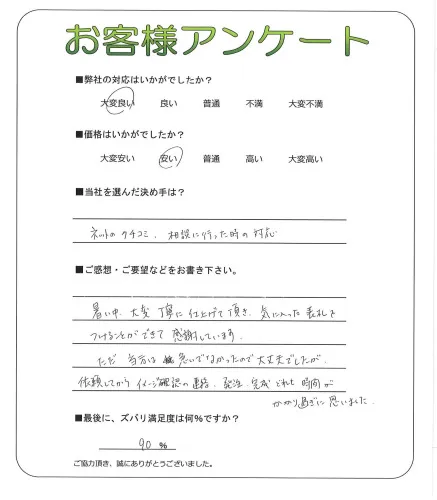 お客様アンケート
■弊社の対応はいかがでしたか?
大変良い 良い 普通 不満 大変不満
■価格はいかがでしたか?
大変安い 安い 普通 高い 大変高い
■当社を選んだ決め手は?
ネットの クチコミ、相談に行った時の対応
■ご感想・ご要望などをお書き下さい。
暑い中、大変 丁寧に仕上げて頂き、気に入った表札を
つけることができて 感謝しています。
ただ 当方は 急いでなかったので大丈夫でしたが、
依頼してから イメージ確認の連絡、発注、完成 どれも 時間が
かかり過ぎに思いました。
■最後に、ズバリ満足度は何%ですか?
90 %
ご協力頂き、誠にありがとうございました。